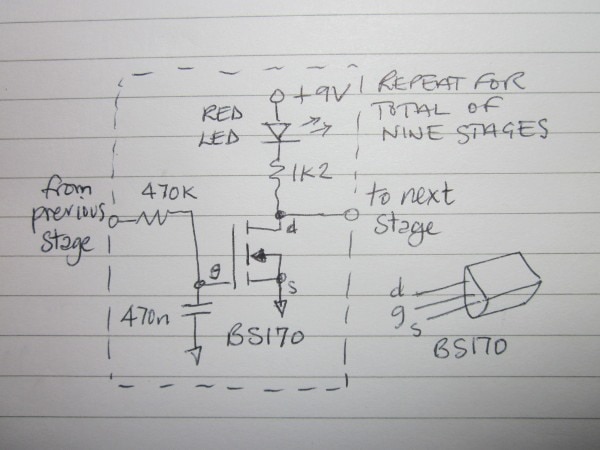 +9V
RED
LED
REPEAT FOR
TOTAL OF
NINE STAGES
1K2
from
previous
stage
470K
to next
stage
d
g
s
470n
BS170
d
g
s
BS170